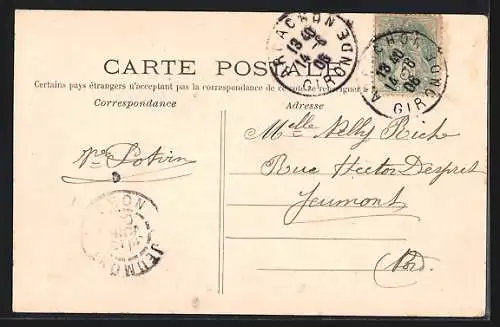 ARCACHON
GIRONDE
13 40
14 -8
06
ARCACHON
GIRONDE
13 40
14 -8
06
CARTE POSTALE
Certains pays étrangers n'acceptant pas la correspondance de ce côté se renseigner à
Correspondance
Adresse
Melle Nelly Riche
Potvin
Rue Hector Despret
Jeumont
Nord.
JEUMONT